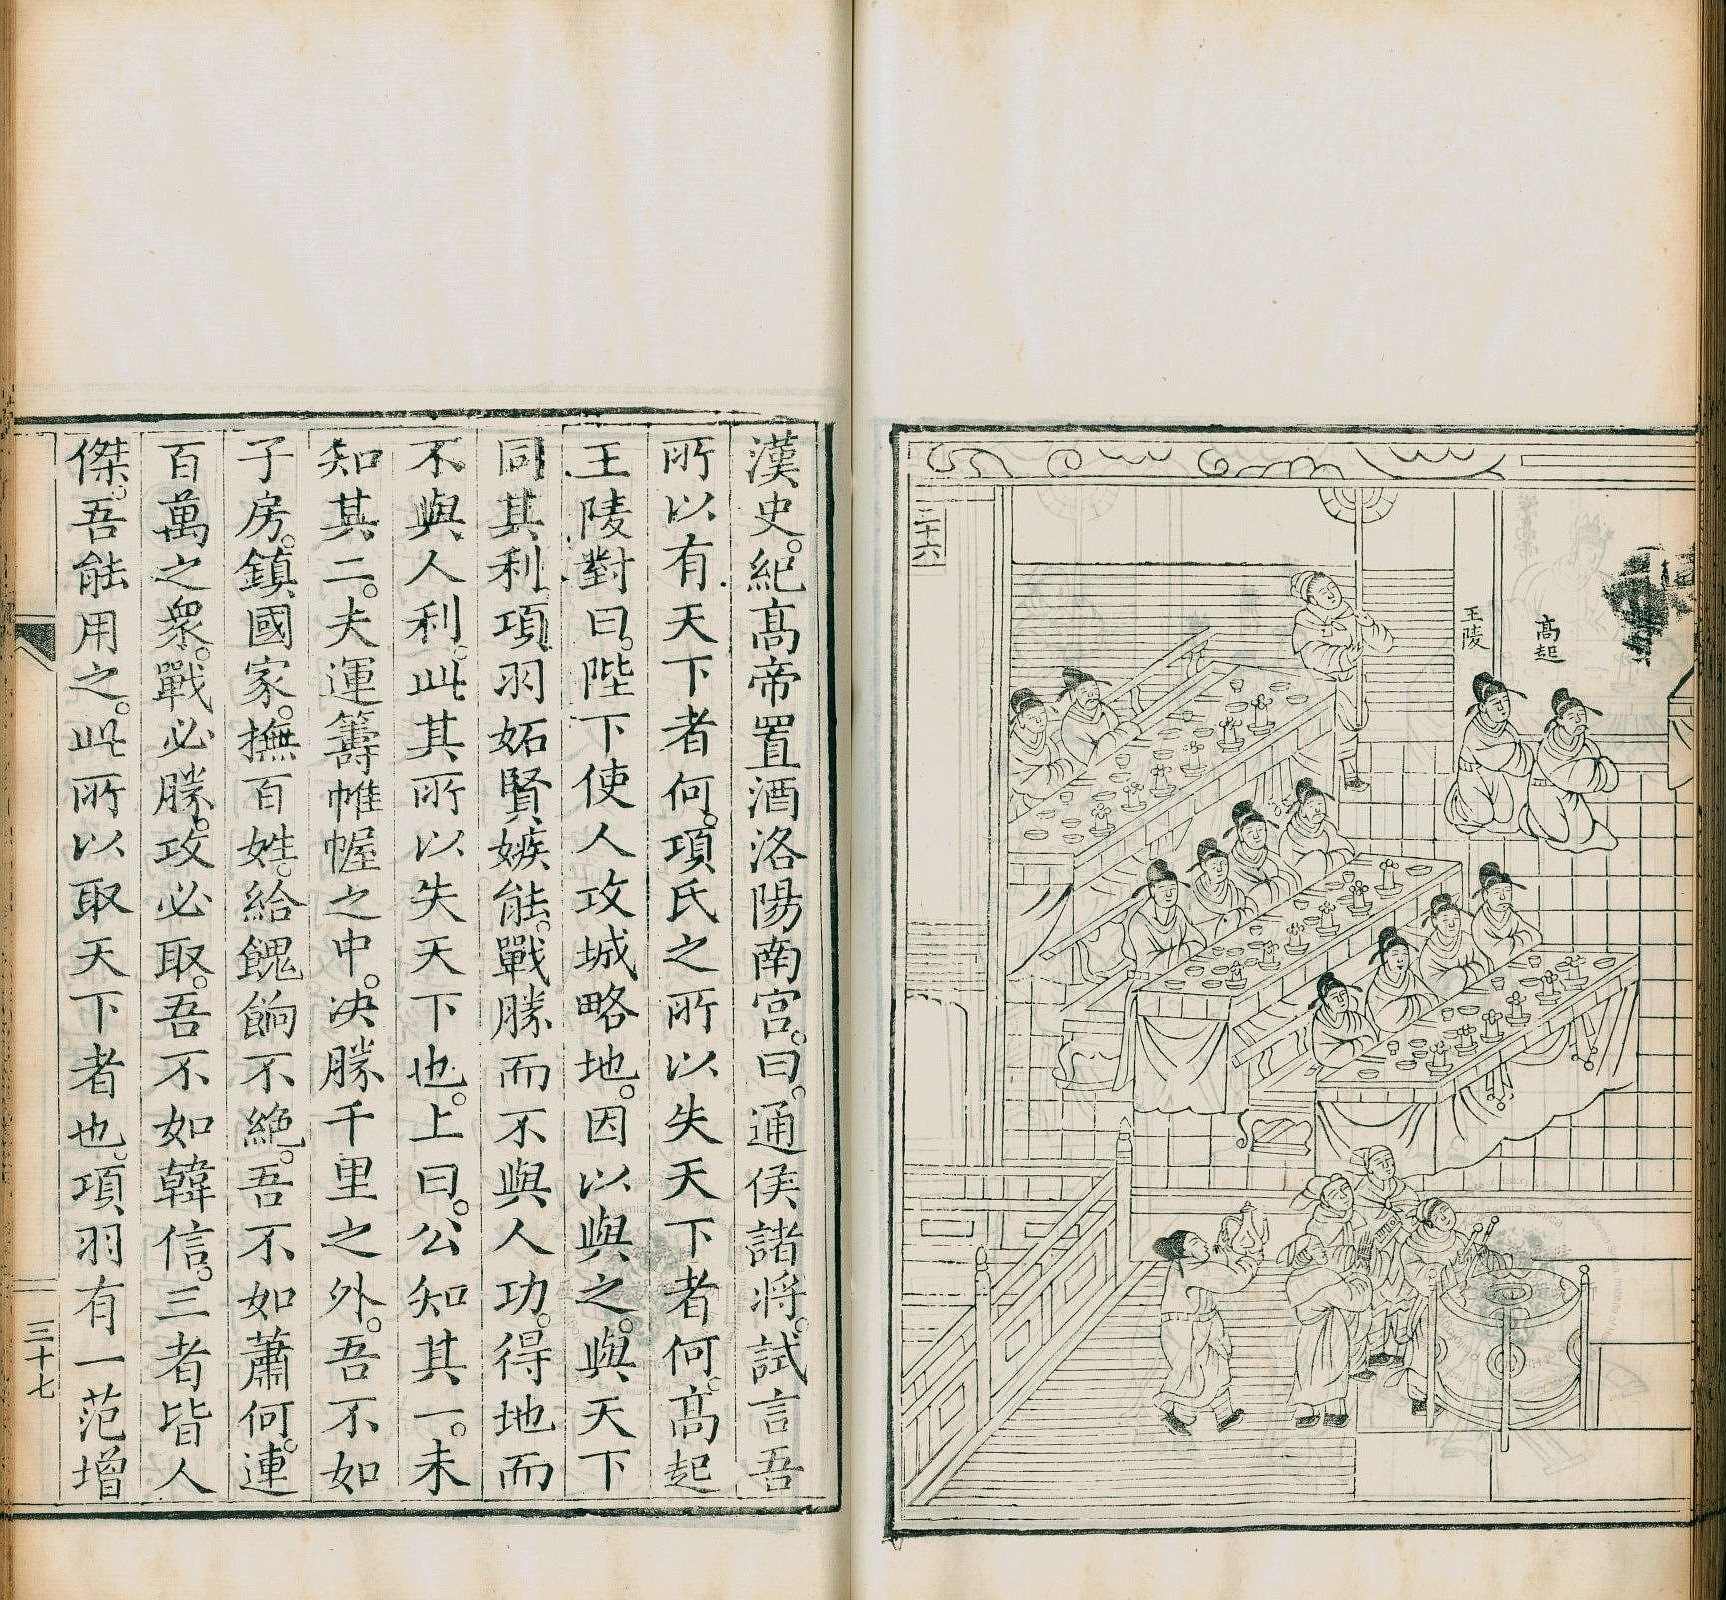 三十六
高起
王陵
漢史。紀高帝置酒洛陽南宮。曰。通侯諸將。試言吾
所以有天下者何。項氏之所以失天下者何。高起
王陵對曰。陛下使人攻城略地。因以與之。與天下
同其利。項羽妬賢嫉能。戰勝而不與人功。得地而
不與人利。此其所以失天下也。上曰。公知其一。未
知其二。夫運籌帷幄之中。决勝千里之外。吾不如
子房。鎮國家。撫百姓。給餽餉不絕。吾不如蕭何。連
百萬之衆。戰必勝。攻必取。吾不如韓信。三者皆人
傑。吾能用之。此所以取天下者也。項羽有一范增
三十七